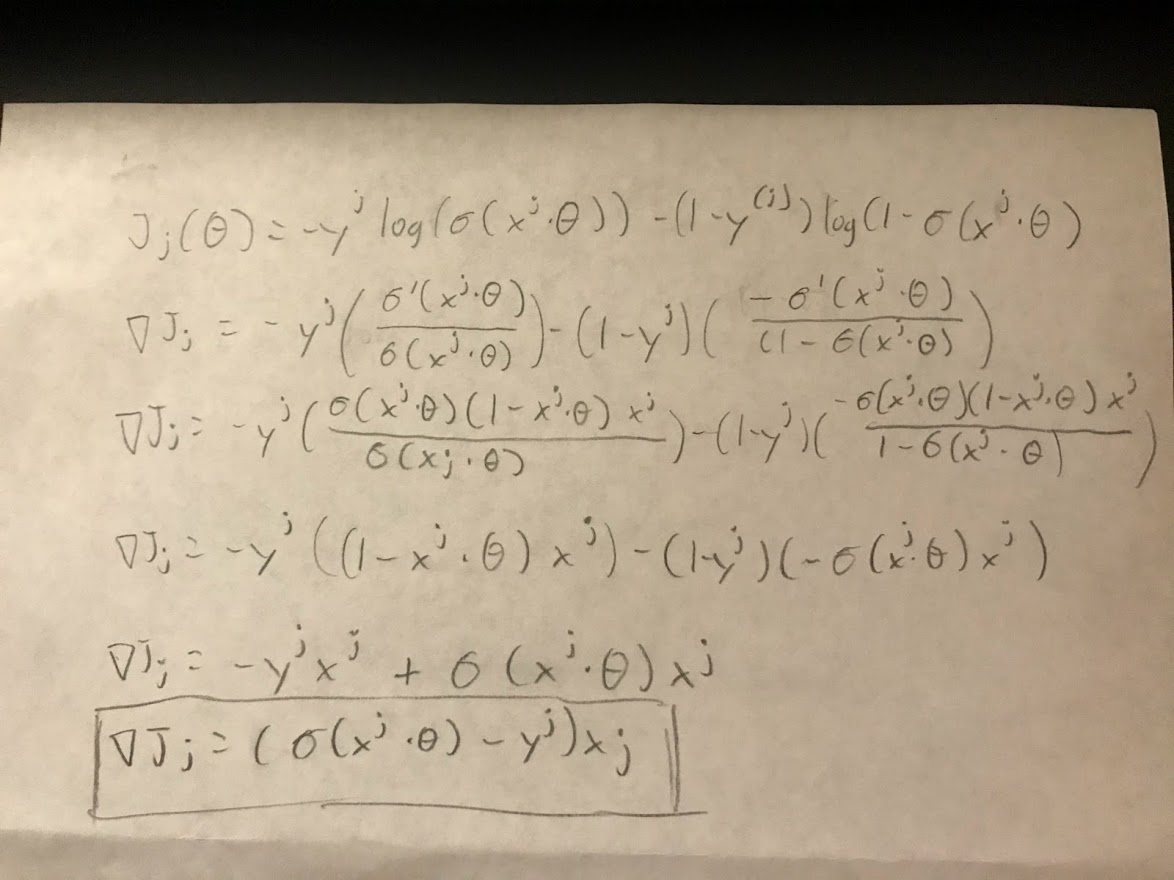 J_j(θ) = -y^j log(σ(x^j·θ)) - (1-y^(j)) log(1-σ(x^j·θ)
∇J_j = -y^j(σ'(x^j·θ)/σ(x^j·θ)) - (1-y^j)(-σ'(x^j·θ)/((1-σ(x^j·θ))
∇J_j = -y^j(σ(x^j·θ)(1-x^j·θ)x^j/σ(x_j·θ)) - (1-y^j)(-σ(x^j·θ)(1-x^j·θ)x^j/1-σ(x^j·θ))
∇J_j = -y^j((1-x^j·θ)x^j) - (1-y^j)(-σ(x^j·θ)x^j)
∇J_j = -y^j x^j + σ(x^j·θ)x^j
∇J_j = (σ(x^j·θ) - y^j)x_j